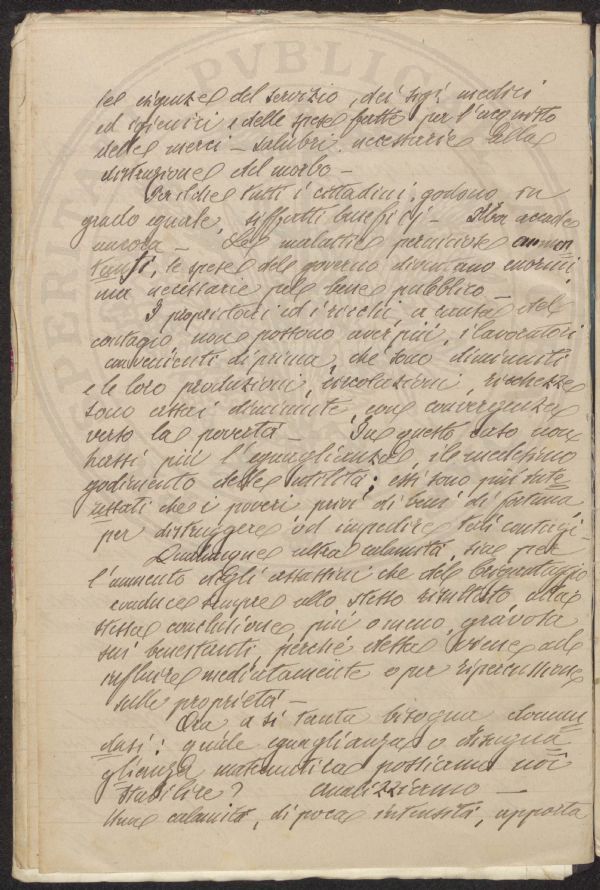 PERITA PVBLIC
le esigenze del servizio, dei sigi medici
ed igienici, e delle spese fatte per l'acquisto
delle merci – salubri necessarie alla
distruzione del morbo –
Perilchè tutti i cittadini, godono in
grado eguale, siffatti beneficj – Ma accade
ancora – Le malattie perniciose aumen
tansi, le spese del governo diventano enormi
ma necessarie pel bene pubblico –
I proprietari ed i ricchi, a causa del
contagio non possono aver più, i lavoratori
convenienti di prima, chè sono diminuiti
e le loro produzioni, circolazioni, ricchezze
sono assai diminuite, con convergenza
verso la povertà – In questo caso non
hassi più l'eguaglianza, il medesimo
godimento delle utilità; essi sono più inte
ressati che i poveri privi di beni di fortuna
per distruggere ed impedire tali contagi –
Qualunque altra calamità, sia per
l'aumento degli assassini che del brigantaggio
conduce sempre allo stesso risultato alla
stessa conclusione, più o meno gravosa
sui benestanti, perchè dessa viene ad
influire mediatamente o per ripercussione
sulle proprietà –
Ora a si tanta bisogna doman
dasi: quale eguaglianza o disegua
glianza matematica possiamo noi
stabilire? analizziamo –
Una calamità, di poca intensità, apporta